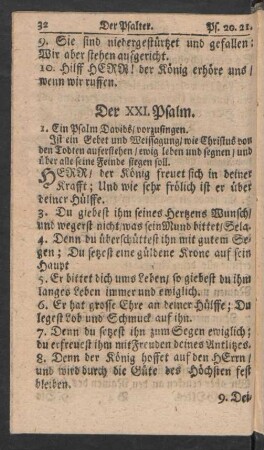 32 Der Psalter. Ps. 20. 21.
9. Sie sind niedergestürtzet und gefallen:
Wir aber stehen aufgericht.
10. Hilff HERR! der König erhöre uns/
wenn wir ruffen.
Der XXI. Psalm.
1. Ein Psalm Davids/ vorzusingen.
Ist ein Gebet und Weissagung/ wie Christus von
den Todten auferstehen/ ewig leben und segnen/ und
über alle seine Feinde siegen soll.
HERR/ der König freuet sich in deiner
Krafft; Und wie sehr frölich ist er über
deiner Hülffe.
3. Du giebest ihm seines Hertzens Wunsch/
und wegerst nicht/ was sein Mund bittet/ Sela.
4. Denn du überschüttest ihn mit gutem Se-
gen; Du setzest eine güldene Krone auf sein
Haupt
5. Er bittet dich ums Leben/ so giebest du ihm
langes Leben immer und ewiglich.
6. Er hat grosse Ehre an deiner Hülffe; Du
legest Lob und Schmuck auf ihn.
7. Denn du setzest ihn zum Segen ewiglich;
du erfreuest ihn mit Freuden deines Antlitzes.
8. Denn der König hoffet auf den HErrn/
und wird durch die Güte des Höchsten fest
bleiben.
9. Dei-